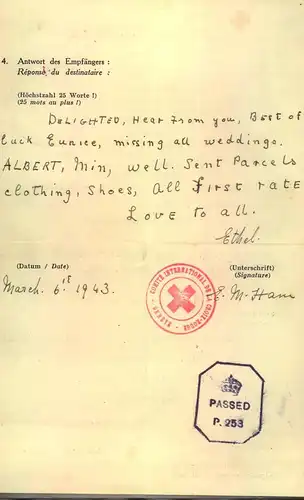 4. Antwort des Empfängers :
Réponse du destinataire :
(Höchstzahl 25 Worte !)
(25 mots au plus !)
DELIGHTED, Hear from you, Best of
luck Eunice, missing all weddings.
ALBERT, Min, well. Sent Parcels
clothing, Shoes, All first rate
Love to all.
Ethel.
(Datum / Date)
(Unterschrift)
(Signature)
March. 6. 1943.
E. M. Ham
COMITÉ INTERNATIONAL DE LA CROIX-ROUGE
PASSED
P. 253